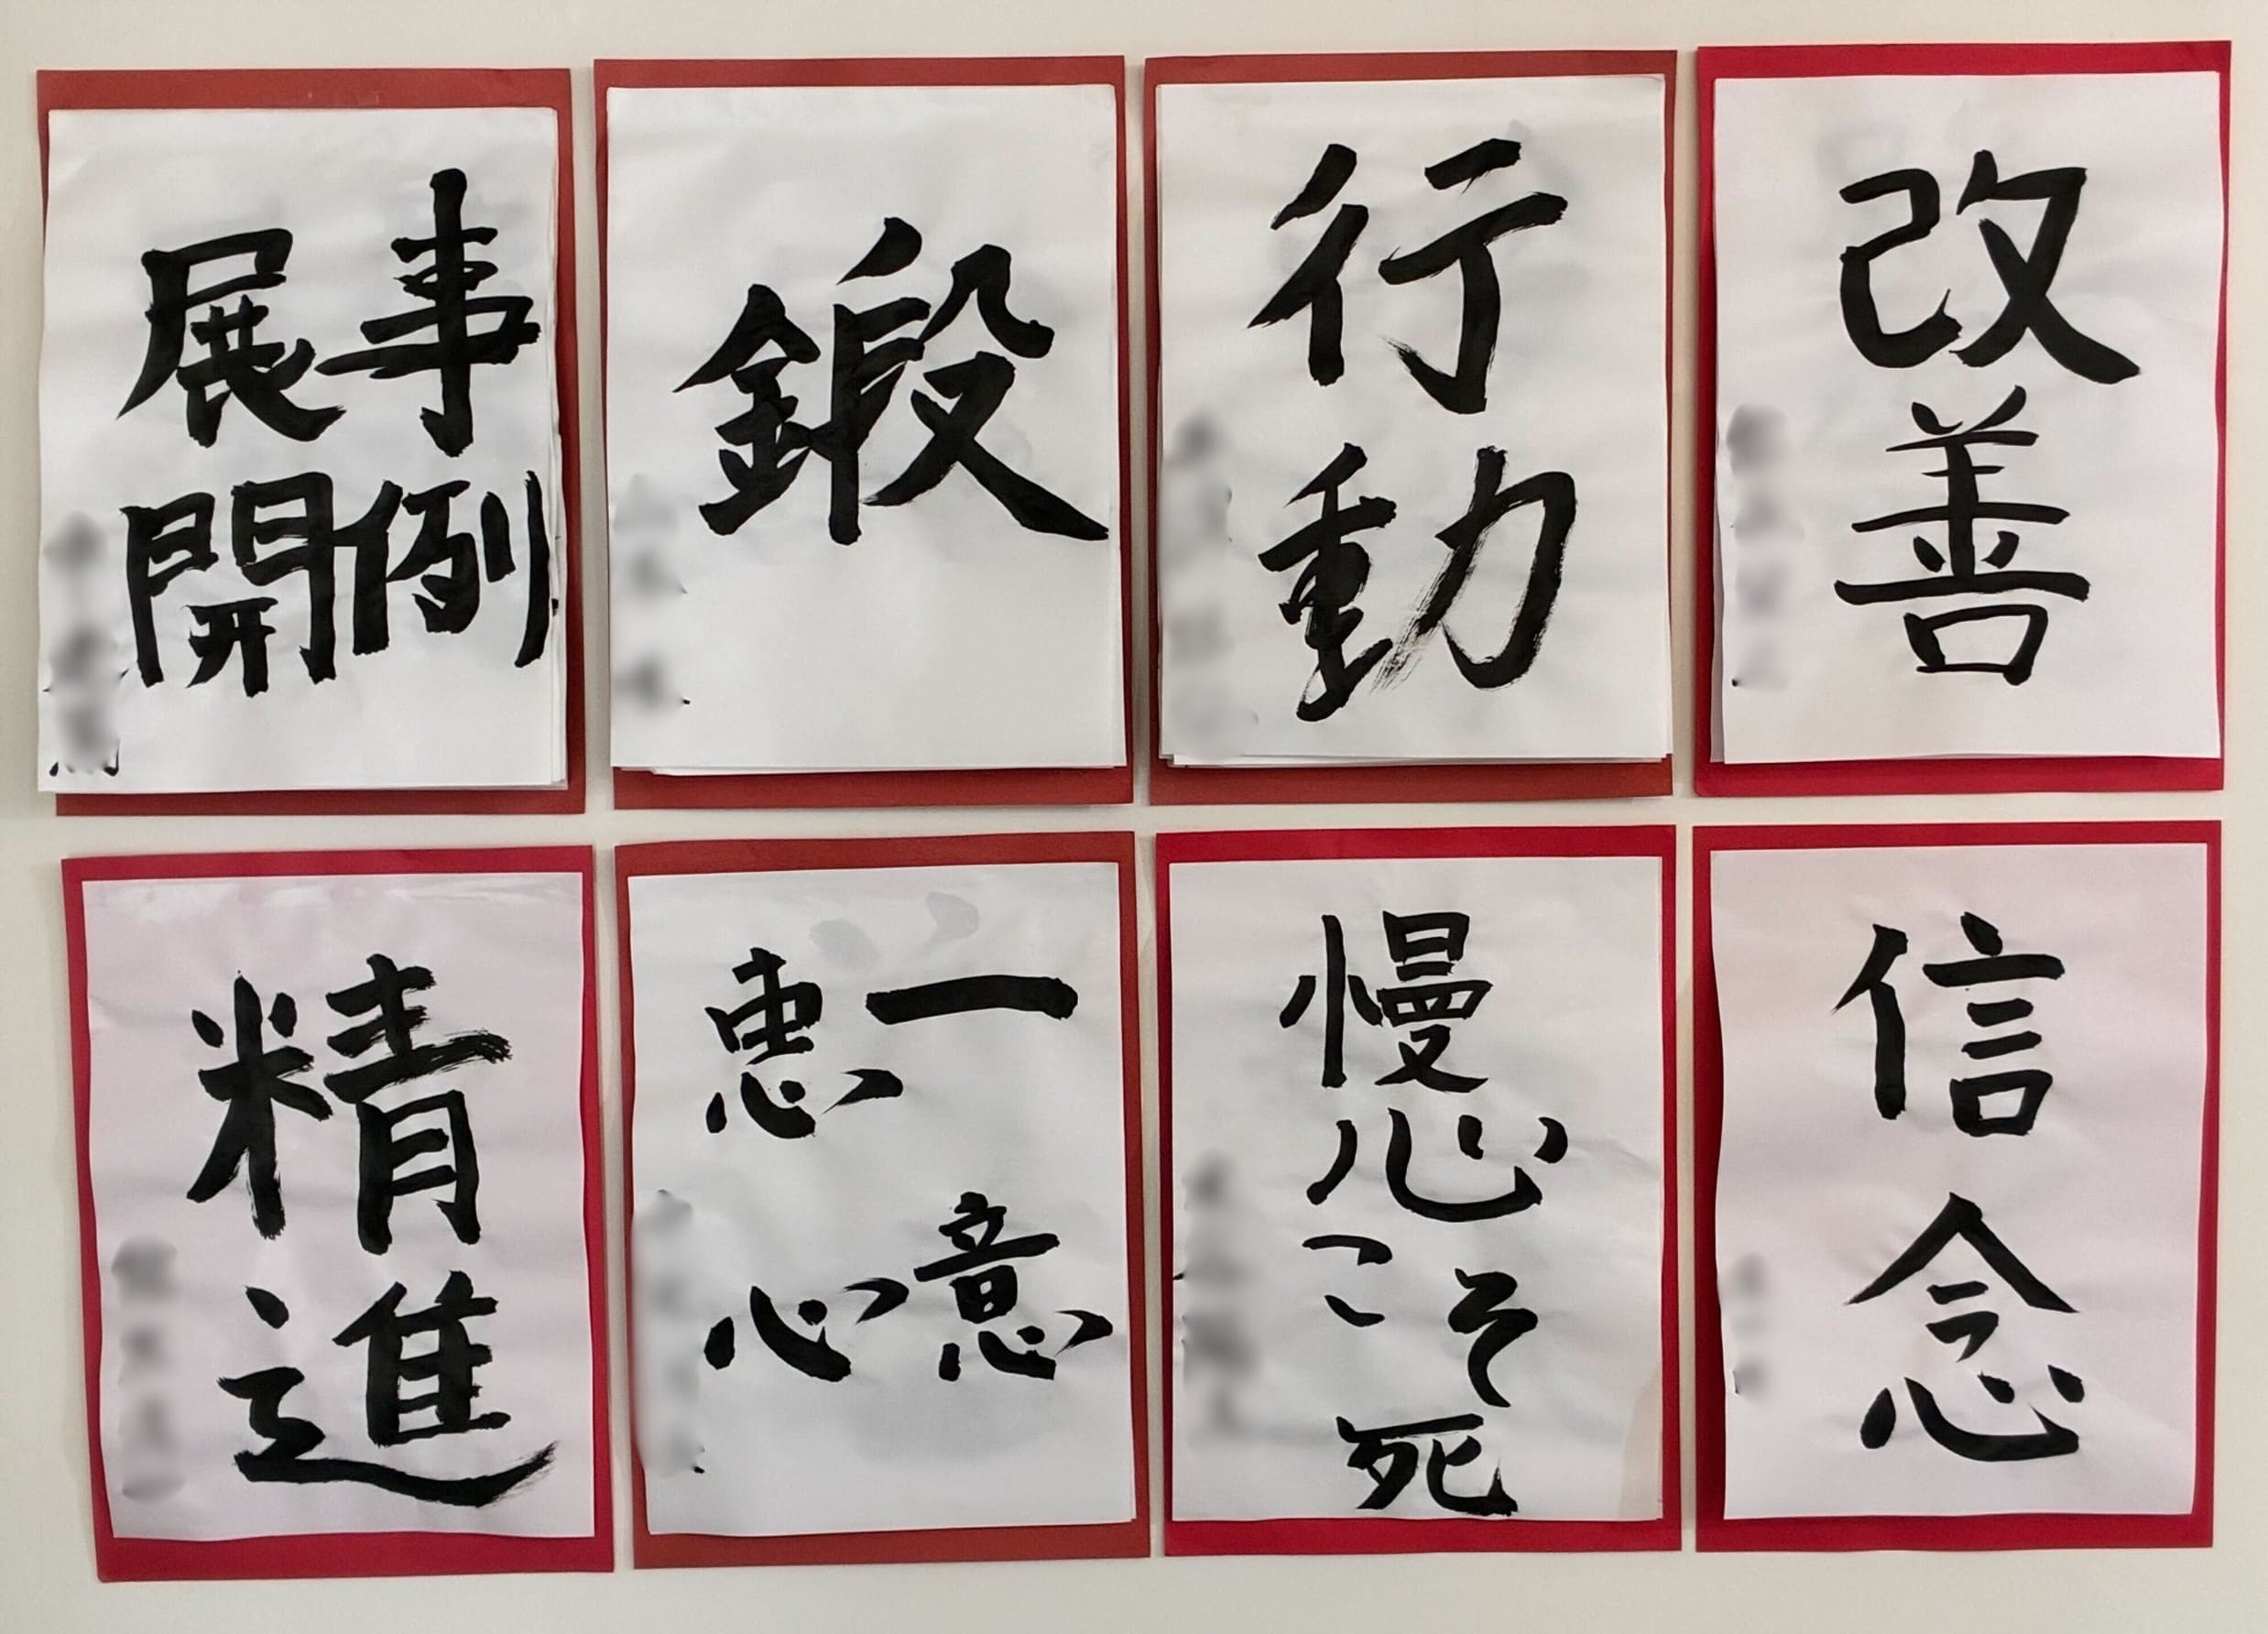 改善
行動
鍛
事例
展開
信念
慢心こそ死
一意
恵心
精進